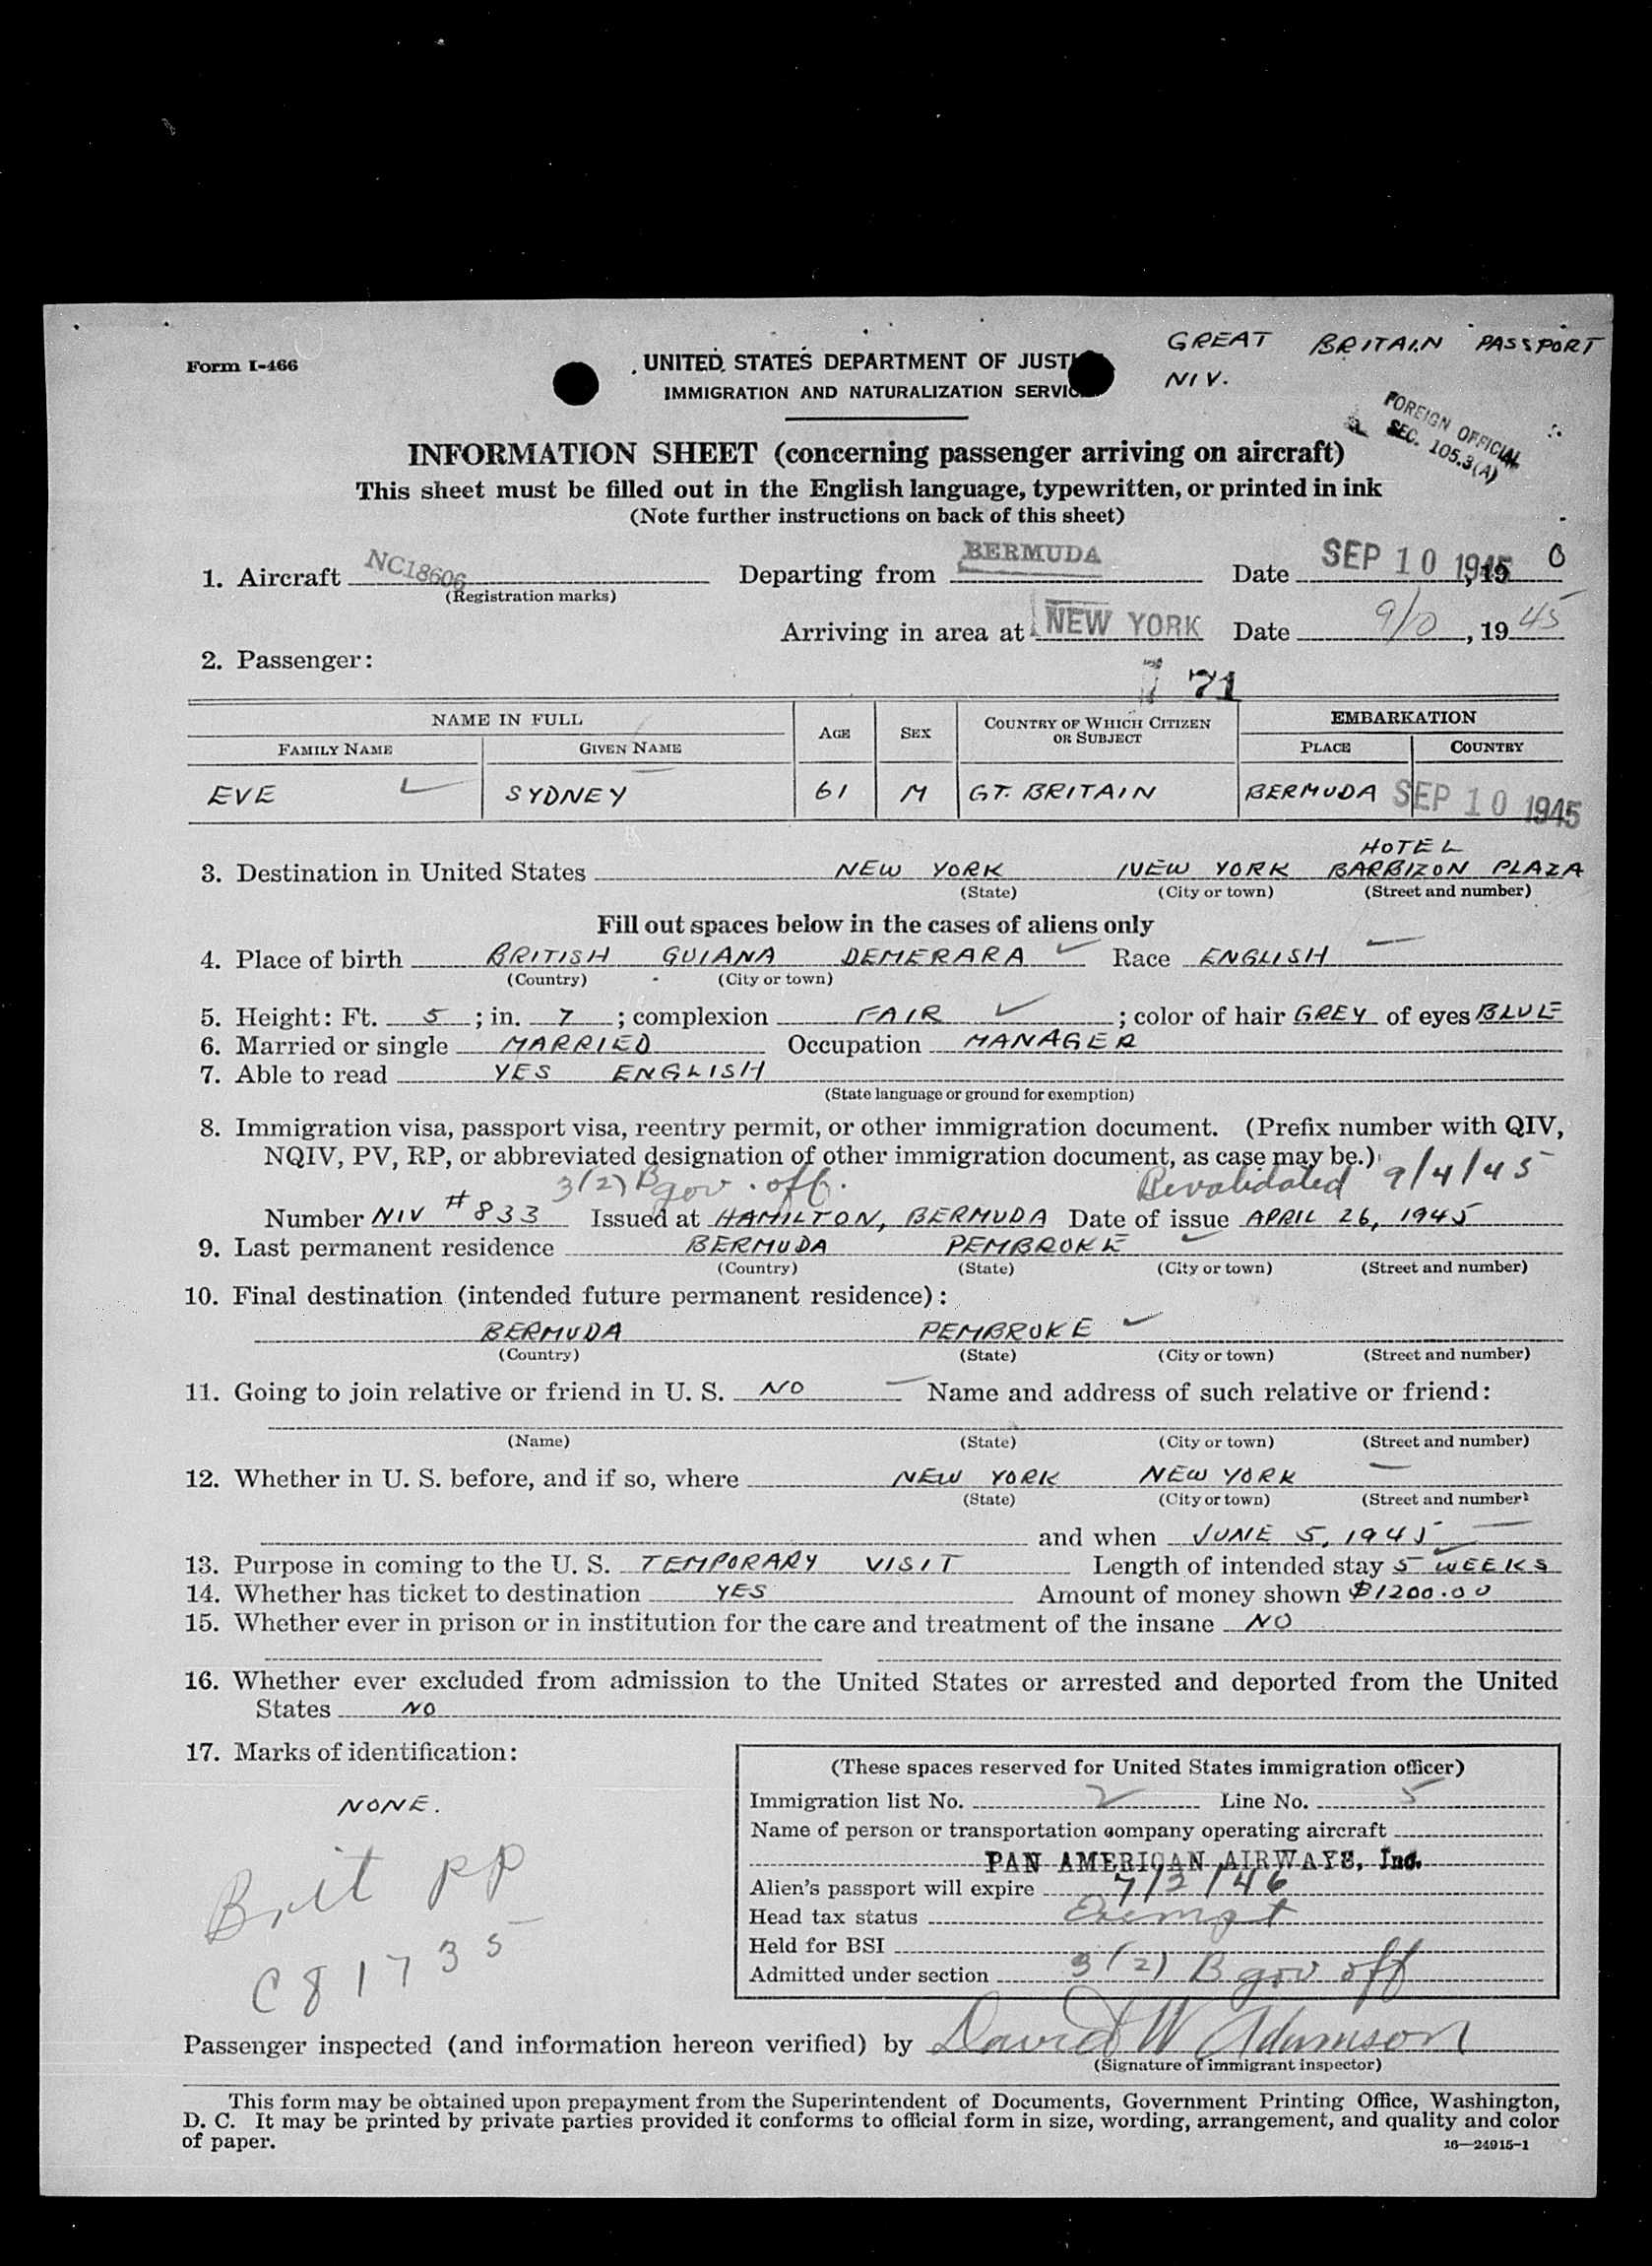 GREAT BRITAIN PASSPORT
NIV.
Form I-466
UNITED STATES DEPARTMENT OF JUST
IMMIGRATION AND NATURALIZATION SERVIC
FOREIGN OFFICIAL
SEC. 105.3(A)
INFORMATION SHEET (concerning passenger arriving on aircraft)
This sheet must be filled out in the English language, typewritten, or printed in ink
(Note further instructions on back of this sheet)
1. Aircraft NC18606 Departing from BERMUDA Date SEP 10 1945, 19 0
(Registration marks)
Arriving in area at NEW YORK Date 9/10, 19 45
2. Passenger:
71
NAME IN FULL AGE SEX COUNTRY OF WHICH CITIZEN OR SUBJECT EMBARKATION
FAMILY NAME GIVEN NAME PLACE COUNTRY
EVE SYDNEY 61 M GT. BRITAIN BERMUDA SEP 10 1945
HOTEL
3. Destination in United States NEW YORK NEW YORK BARBIZON PLAZA
(State) (City or town) (Street and number)
Fill out spaces below in the cases of aliens only
4. Place of birth BRITISH GUIANA DEMERARA Race ENGLISH
(Country) (City or town)
5. Height: Ft. 5 ; in. 7 ; complexion FAIR ; color of hair GREY of eyes BLUE
6. Married or single MARRIED Occupation MANAGER
7. Able to read YES ENGLISH
(State language or ground for exemption)
8. Immigration visa, passport visa, reentry permit, or other immigration document. (Prefix number with QIV,
NQIV, PV, RP, or abbreviated designation of other immigration document, as case may be.)
3(2) B gov. off. Revalidated 9/4/45
Number NIV #833 Issued at HAMILTON, BERMUDA Date of issue APRIL 26, 1945
9. Last permanent residence BERMUDA PEMBROKE
(Country) (State) (City or town) (Street and number)
10. Final destination (intended future permanent residence):
BERMUDA PEMBROKE
(Country) (State) (City or town) (Street and number)
11. Going to join relative or friend in U. S. NO Name and address of such relative or friend:
(Name) (State) (City or town) (Street and number)
12. Whether in U. S. before, and if so, where NEW YORK NEW YORK
(State) (City or town) (Street and number)
and when JUNE 5, 1945
13. Purpose in coming to the U. S. TEMPORARY VISIT Length of intended stay 5 WEEKS
14. Whether has ticket to destination YES Amount of money shown $1200.00
15. Whether ever in prison or in institution for the care and treatment of the insane NO
16. Whether ever excluded from admission to the United States or arrested and deported from the United
States NO
17. Marks of identification:
NONE.
Brit pp
C81735
(These spaces reserved for United States immigration officer)
Immigration list No. 2 Line No. 5
Name of person or transportation company operating aircraft
PAN AMERICAN AIRWAYS, Inc.
Alien's passport will expire 7/2/46
Head tax status Exempt
Held for BSI
Admitted under section 3(2) B gov off
Passenger inspected (and information hereon verified) by David W Adamson
(Signature of immigrant inspector)
This form may be obtained upon prepayment from the Superintendent of Documents, Government Printing Office, Washington,
D. C. It may be printed by private parties provided it conforms to official form in size, wording, arrangement, and quality and color
of paper.
16—24915-1